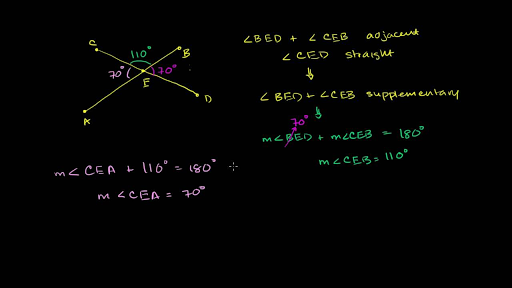 C
110°
B
70°
70°
E
D
A
∠BED + ∠CEB adjacent
∠CED straight
∠BED + ∠CEB supplementary
70°
m∠BED + m∠CEB = 180°
m∠CEB = 110°
m∠CEA + 110° = 180°
m∠CEA = 70°